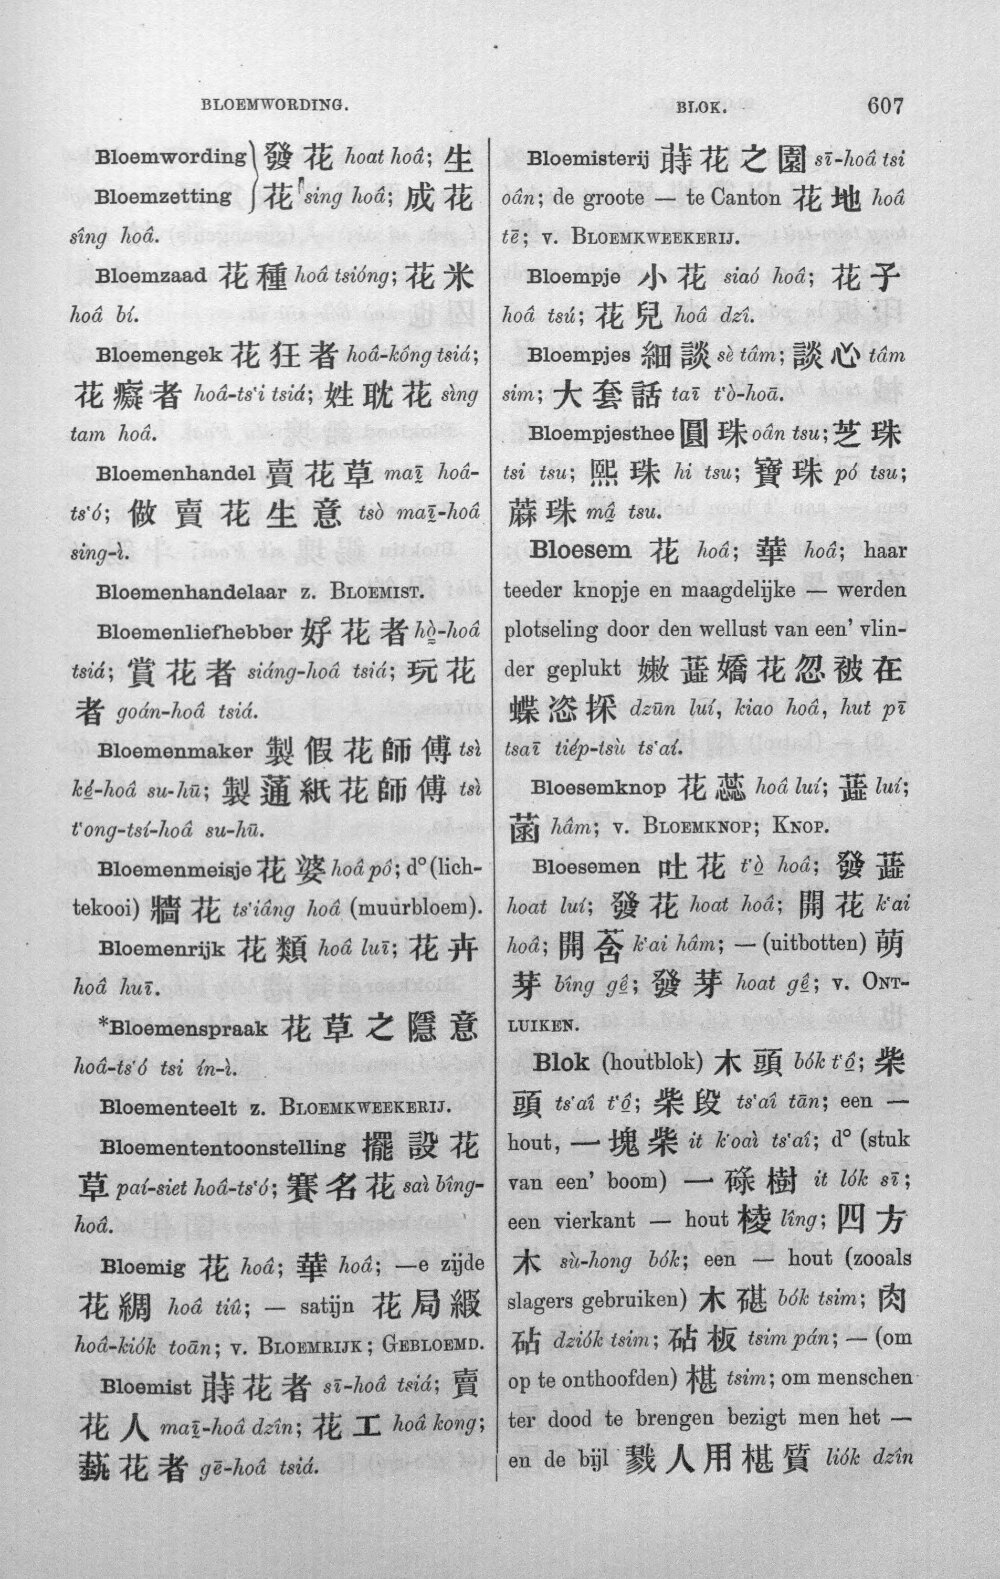 BLOEMWORDING.
BLOK.
607
Bloemwording } 發花 hoat hoâ; 生
Bloemzetting } 花 sing hoâ; 成花
sîng hoâ.
Bloemzaad 花種 hoâ tsióng; 花米
hoâ bí.
Bloemengek 花狂者 hoâ-kông tsiá;
花癡者 hoâ-ts‘i tsiá; 姓耽花 sìng
tam hoâ.
Bloemenhandel 賣花草 maī hoâ-
ts‘ó; 做賣花生意 tsò maī-hoâ
sing-ì.
Bloemenhandelaar z. BLOEMIST.
Bloemenliefhebber 好花者 hò-hoâ
tsiá; 賞花者 siáng-hoâ tsiá; 玩花
者 goán-hoâ tsiá.
Bloemenmaker 製假花師傅 tsì
ké-hoâ su-hū; 製蓪紙花師傅 tsì
t‘ong-tsí-hoâ su-hū.
Bloemenmeisje 花婆 hoâ pô; d° (lich-
tekooi) 牆花 ts‘iâng hoâ (muurbloem).
Bloemenrijk 花類 hoâ luī; 花卉
hoâ huī.
*Bloemenspraak 花草之隱意
hoâ-ts‘ó tsi ín-ì.
Bloementeelt z. BLOEMKWEEKERIJ.
Bloemententoonstelling 擺設花
草 paí-siet hoâ-ts‘ó; 賽名花 saì bîng-
hoâ.
Bloemig 花 hoâ; 華 hoâ; —e zijde
花綢 hoâ tiû; — satijn 花局緞
hoâ-kiók toān; v. BLOEMRIJK; GEBLOEMD.
Bloemist 蒔花者 sī-hoâ tsiá; 賣
花人 maī-hoâ dzîn; 花工 hoâ kong;
藝花者 gē-hoâ tsiá.
Bloemisterij 蒔花之園 sī-hoâ tsi
oân; de groote — te Canton 花地 hoâ
tē; v. BLOEMKWEEKERIJ.
Bloempje 小花 siaó hoâ; 花子
hoâ tsú; 花兒 hoâ dzî.
Bloempjes 細談 sè tâm; 談心 tâm
sim; 大套話 taī t‘ò-hoâ.
Bloempjesthee 圓珠 oân tsu; 芝珠
tsi tsu; 熙珠 hi tsu; 寶珠 pó tsu;
蔴珠 mâ tsu.
Bloesem 花 hoâ; 華 hoâ; haar
teeder knopje en maagdelijke — werden
plotseling door den wellust van een’ vlin-
der geplukt 嫩蕋嬌花忽被在
蝶恣採 dzūn luí, kiao hoâ, hut pī
tsaī tiép-tsù ts‘aí.
Bloesemknop 花蕊 hoâ luí; 蕋 luí;
菡 hâm; v. BLOEMKNOP; KNOP.
Bloesemen 吐花 t‘ò hoâ; 發蕋
hoat luí; 發花 hoat hoâ; 開花 k‘ai
hoâ; 開莟 k‘ai hâm; — (uitbotten) 萌
芽 bîng gê; 發芽 hoat gê; v. ONT-
LUIKEN.
Blok (houtblok) 木頭 bók t‘ô; 柴
頭 ts‘aî t‘ô; 柴段 ts‘aî tān; een —
hout, 一塊柴 it k‘oaì ts‘aî; d° (stuk
van een’ boom) 一碌樹 it lók sī;
een vierkant — hout 棱 lîng; 四方
木 sù-hong bók; een — hout (zooals
slagers gebruiken) 木碪 bók tsim; 肉
砧 dziók tsim; 砧板 tsim pán; — (om
op te onthoofden) 椹 tsim; om menschen
ter dood te brengen bezigt men het —
en de bijl 戮人用椹質 liók dzîn